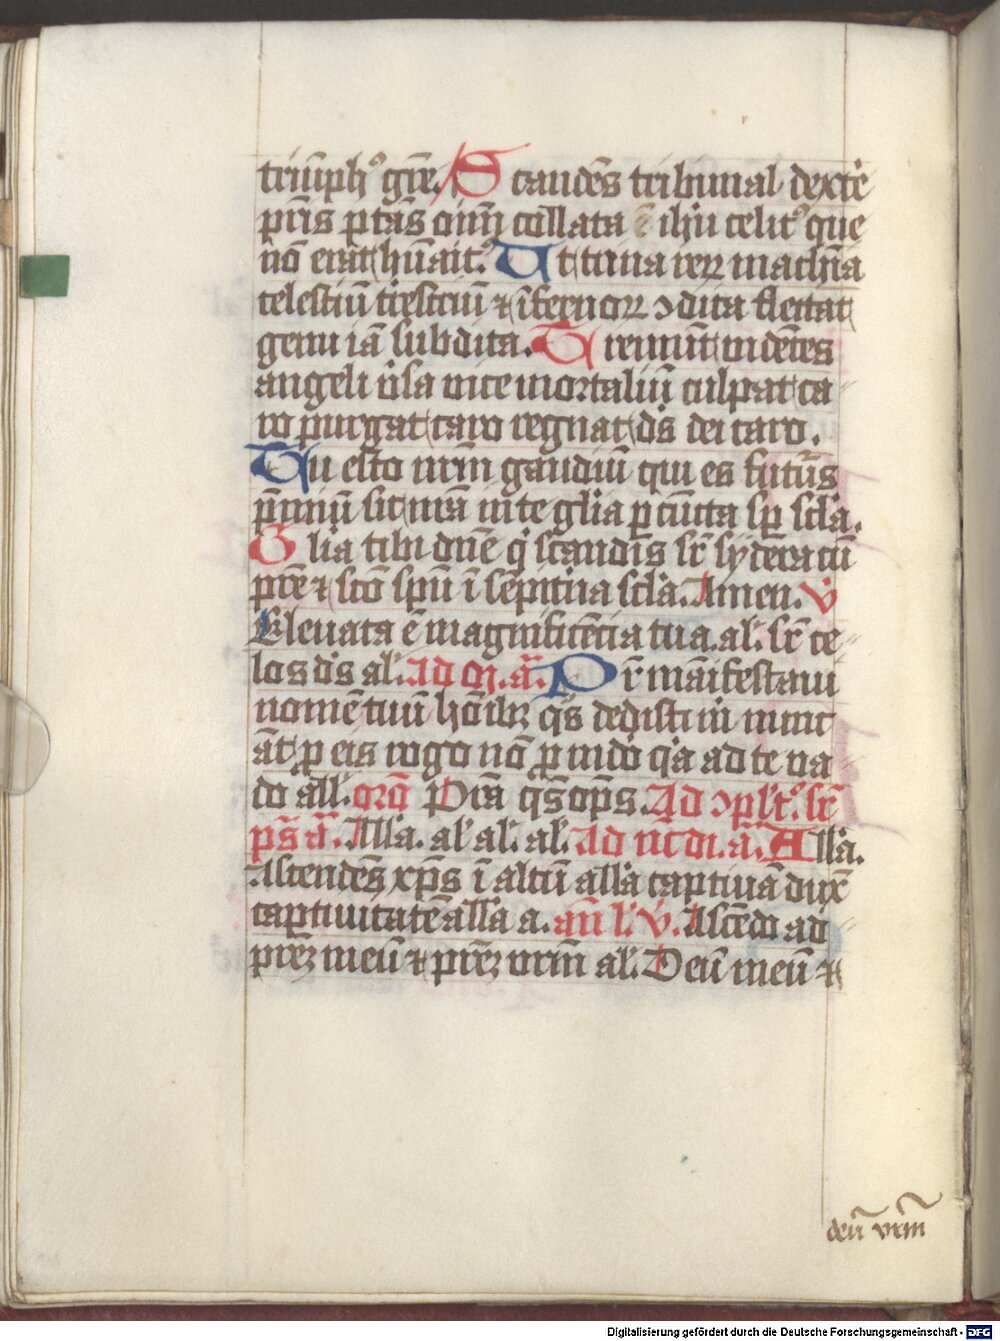 triūph⁹ gr̄e. Scandēs tribunal dexte
pr̄is p̄tās oīm collata ē ihū celit⁹ que
nō erāt hūāit⁹. Ut trina reꝝ machīa
celestiū t̄restriū ⁊ īfernoꝝ ↄdita flectat
genu iā subdita. Tremūt vidētes
angeli v̄sa vice mortaliū culpat ca
ro purgat caro regnat ds̄ dei caro.
Tu esto nr̄m gaudiū qui es futūs
p̄miū sit nr̄a in te gl̄ia ꝑ cūcta sꝑ scl̄a.
Glīa tibi dn̄e q̇ scandis sr̄ sydera cū
pr̄e ⁊ scō spū ī sēpit̄na scl̄a. Amen. v̇
Eleuata ē magnificētia tua. al'. sr̄ ce
los ds̄ al'. Ad m̄. ā. Pr̄ māifestaui
nomē tuū hōībꝫ q̄s dedisti m̄ nunc
āt ꝑ eis rogo nō ꝑ mūdo q̇a ad te va
do all'. orō Pr̄a qs̄ op̄s. Ad ↄpl't⁹. sr̄
ps̄ ā. All̄a. al' al'. al'. Ad nc̄ di. ā. All̄a.
Ascendēs xp̄s ī altū all̄a captiuā dux̄
captiuitatē all̄a a. an̄ l'. v̇. Ascēdo ad
pr̄eꝫ meū ⁊ pr̄eꝫ vr̄m al'. Deū meū ⁊
deū vr̄m
Digitalisierung gefördert durch die Deutsche Forschungsgemeinschaft - DFG